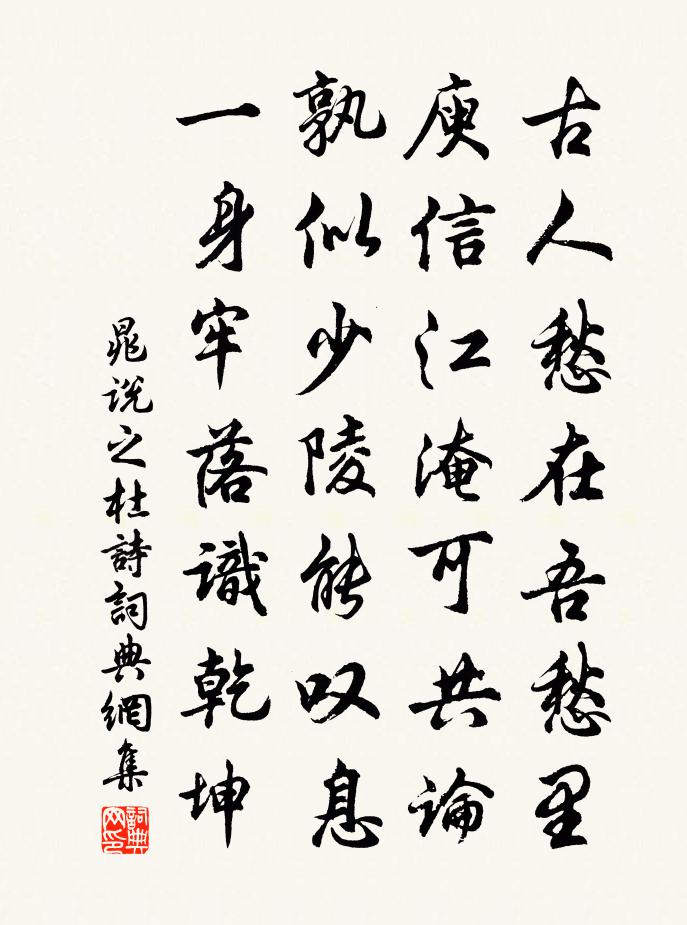 古人愁在吾愁里
庾信江淹可共論
孰似少陵能叹息
一身牢落識乾坤
晁說之杜詩詞典網集
詞典网印